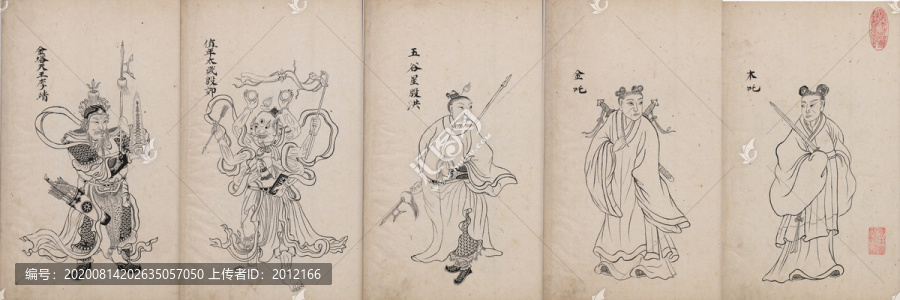 金塔天王李靖
值年太歲殷郊
五谷星殷洪
金吒
木吒
编号：20200814202635057050 上传者ID：2012166